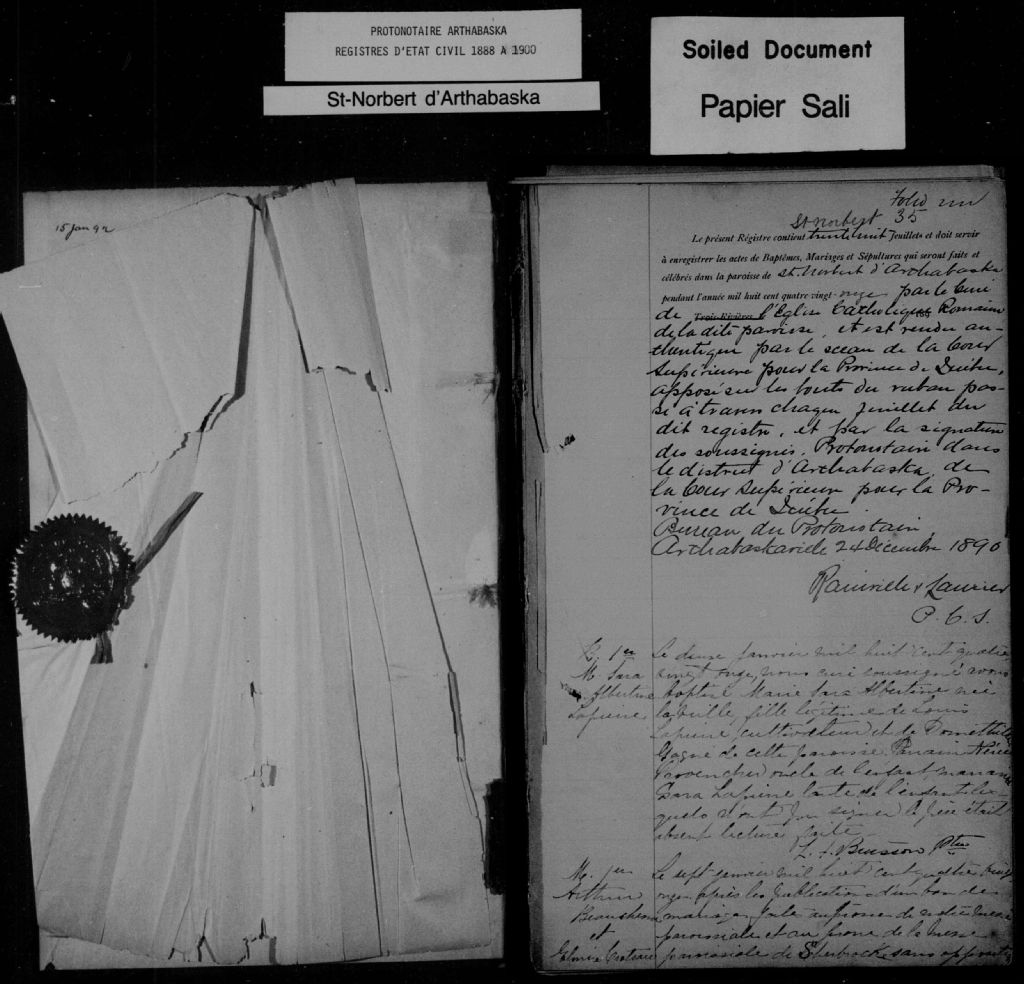 PROTONOTAIRE ARTHABASKA
REGISTRES D'ETAT CIVIL 1888 A 1900
St-Norbert d'Arthabaska
Soiled Document
Papier Sali
15 Jan 92
Folio un
35
St Norbert
Le présent Régistre contient trente huit feuillets et doit servir
à enregistrer les actes de Baptêmes, Mariages et Sépultures qui seront faits et
célébrés dans la paroisse de St. Norbert d'Arthabaska
pendant l'année mil huit cent quatre vingt-onze par le Curé
de Trois-Rivières l'Eglise Catholique Romaine
de la dite paroisse, et est rendu au-
thentique par le sceau de la Cour
Supérieure pour la Province de Québec,
apposé sur les bouts du ruban pas-
sé à travers chaque feuillet du
dit registre, et par la signature
des soussignés, Protonotaire dans
le district d'Arthabaska, de
la Cour Supérieure pour la Pro-
vince de Québec.
Bureau du Protonotaire
Arthabaskaville 24 Décembre 1890
Rainville & Laurier
P. C. S.
B. 1er
M. Sara
Albertine
Lapierre
Le deux janvier mil huit cent quatre
vingt onze, nous curé soussigné avons
baptisé Marie Sara Albertine née
la veille, fille légitime de Louis
Lapierre cultivateur et de
Gagné de cette paroisse. Parrain Nérée
Provencher oncle de l'enfant marraine
Sara Lapierre tante de l'enfant les-
quels n'ont su signer le père était
absent lecture faite
Buisson Ptre
M. 1er
Arthur
Beauchesne
et
Elmire Croteau
Le sept janvier mil huit cent quatre vingt
onze après la publication d'un ban de
mariage faite au prône de notre messe
paroissiale et au prône de la messe
paroissiale de Sherbrooke sans